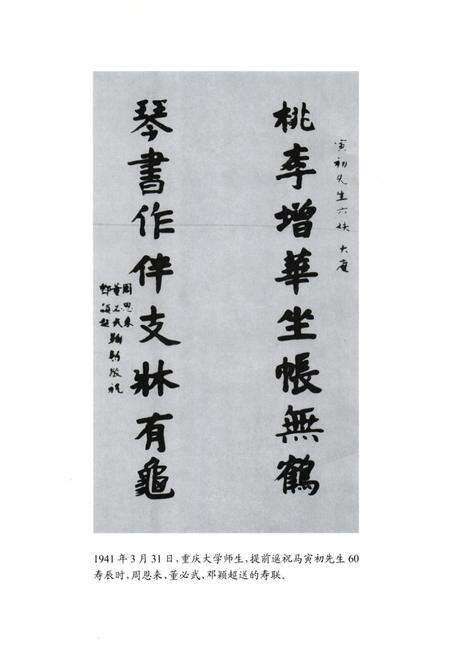 寅初先生六秩大慶
桃李增華坐帳無鶴
琴書作伴支牀有龜
周恩来
董必武
鄧颖超
鞠躬敬祝
1941年3月31日，重庆大学师生，提前遥祝马寅初先生60
寿辰时，周恩来、董必武、邓颖超送的寿联。